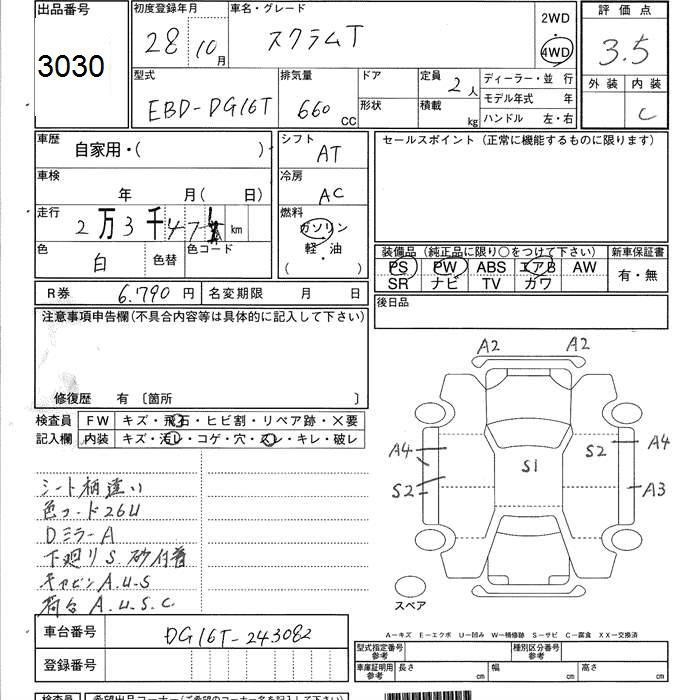 出品番号
3030
初度登録年月
28 10月
車名・グレード
スクラムT
2WD
4WD
評価点
3.5
外装 内装
C
型式
EBD-DG16T
排気量
660 CC
ドア
形状
定員
2人
積載
kg
ディーラー・並行
モデル年式 年
ハンドル 左・右
車歴
自家用・( )
シフト
AT
セールスポイント(正常に機能するものに限ります)
車検
年 月( 日)
冷房
AC
走行
2万3千47 km
燃料
ガソリン
軽・油
( )
色
白
色替
色コード
装備品(純正品に限り○をつけて下さい)
新車保証書
PS PW ABS エアB AW
SR ナビ TV カワ
有・無
R券 6.790円
名変期限 月 日
後日品
注意事項申告欄(不具合内容等は具体的に記入して下さい)
修復歴 有 〔箇所 〕
検査員
記入欄
FW キズ・飛石・ヒビ割・リペア跡・×要
内装 キズ・汚レ・コゲ・穴・スレ・キレ・破レ
シート柄違い
色コード26U
DミラーA
下廻りS.砂付着
キャビンA.U.S
荷台 A.U.S.C.
A2 A2
A4 S2 A4
S1
S2 A3
スペア
A-キズ E-エクボ U-凹み W-補修跡 S-サビ C-腐食 XX-交換済
車台番号
DG16T-243082
登録番号
型式指定番号
参考
種別区分番号
参考
車庫証明用
参考
長さ cm 幅 cm 高さ cm
検査員
希望出品コーナー(ご希望のコーナー名を記入下さい)